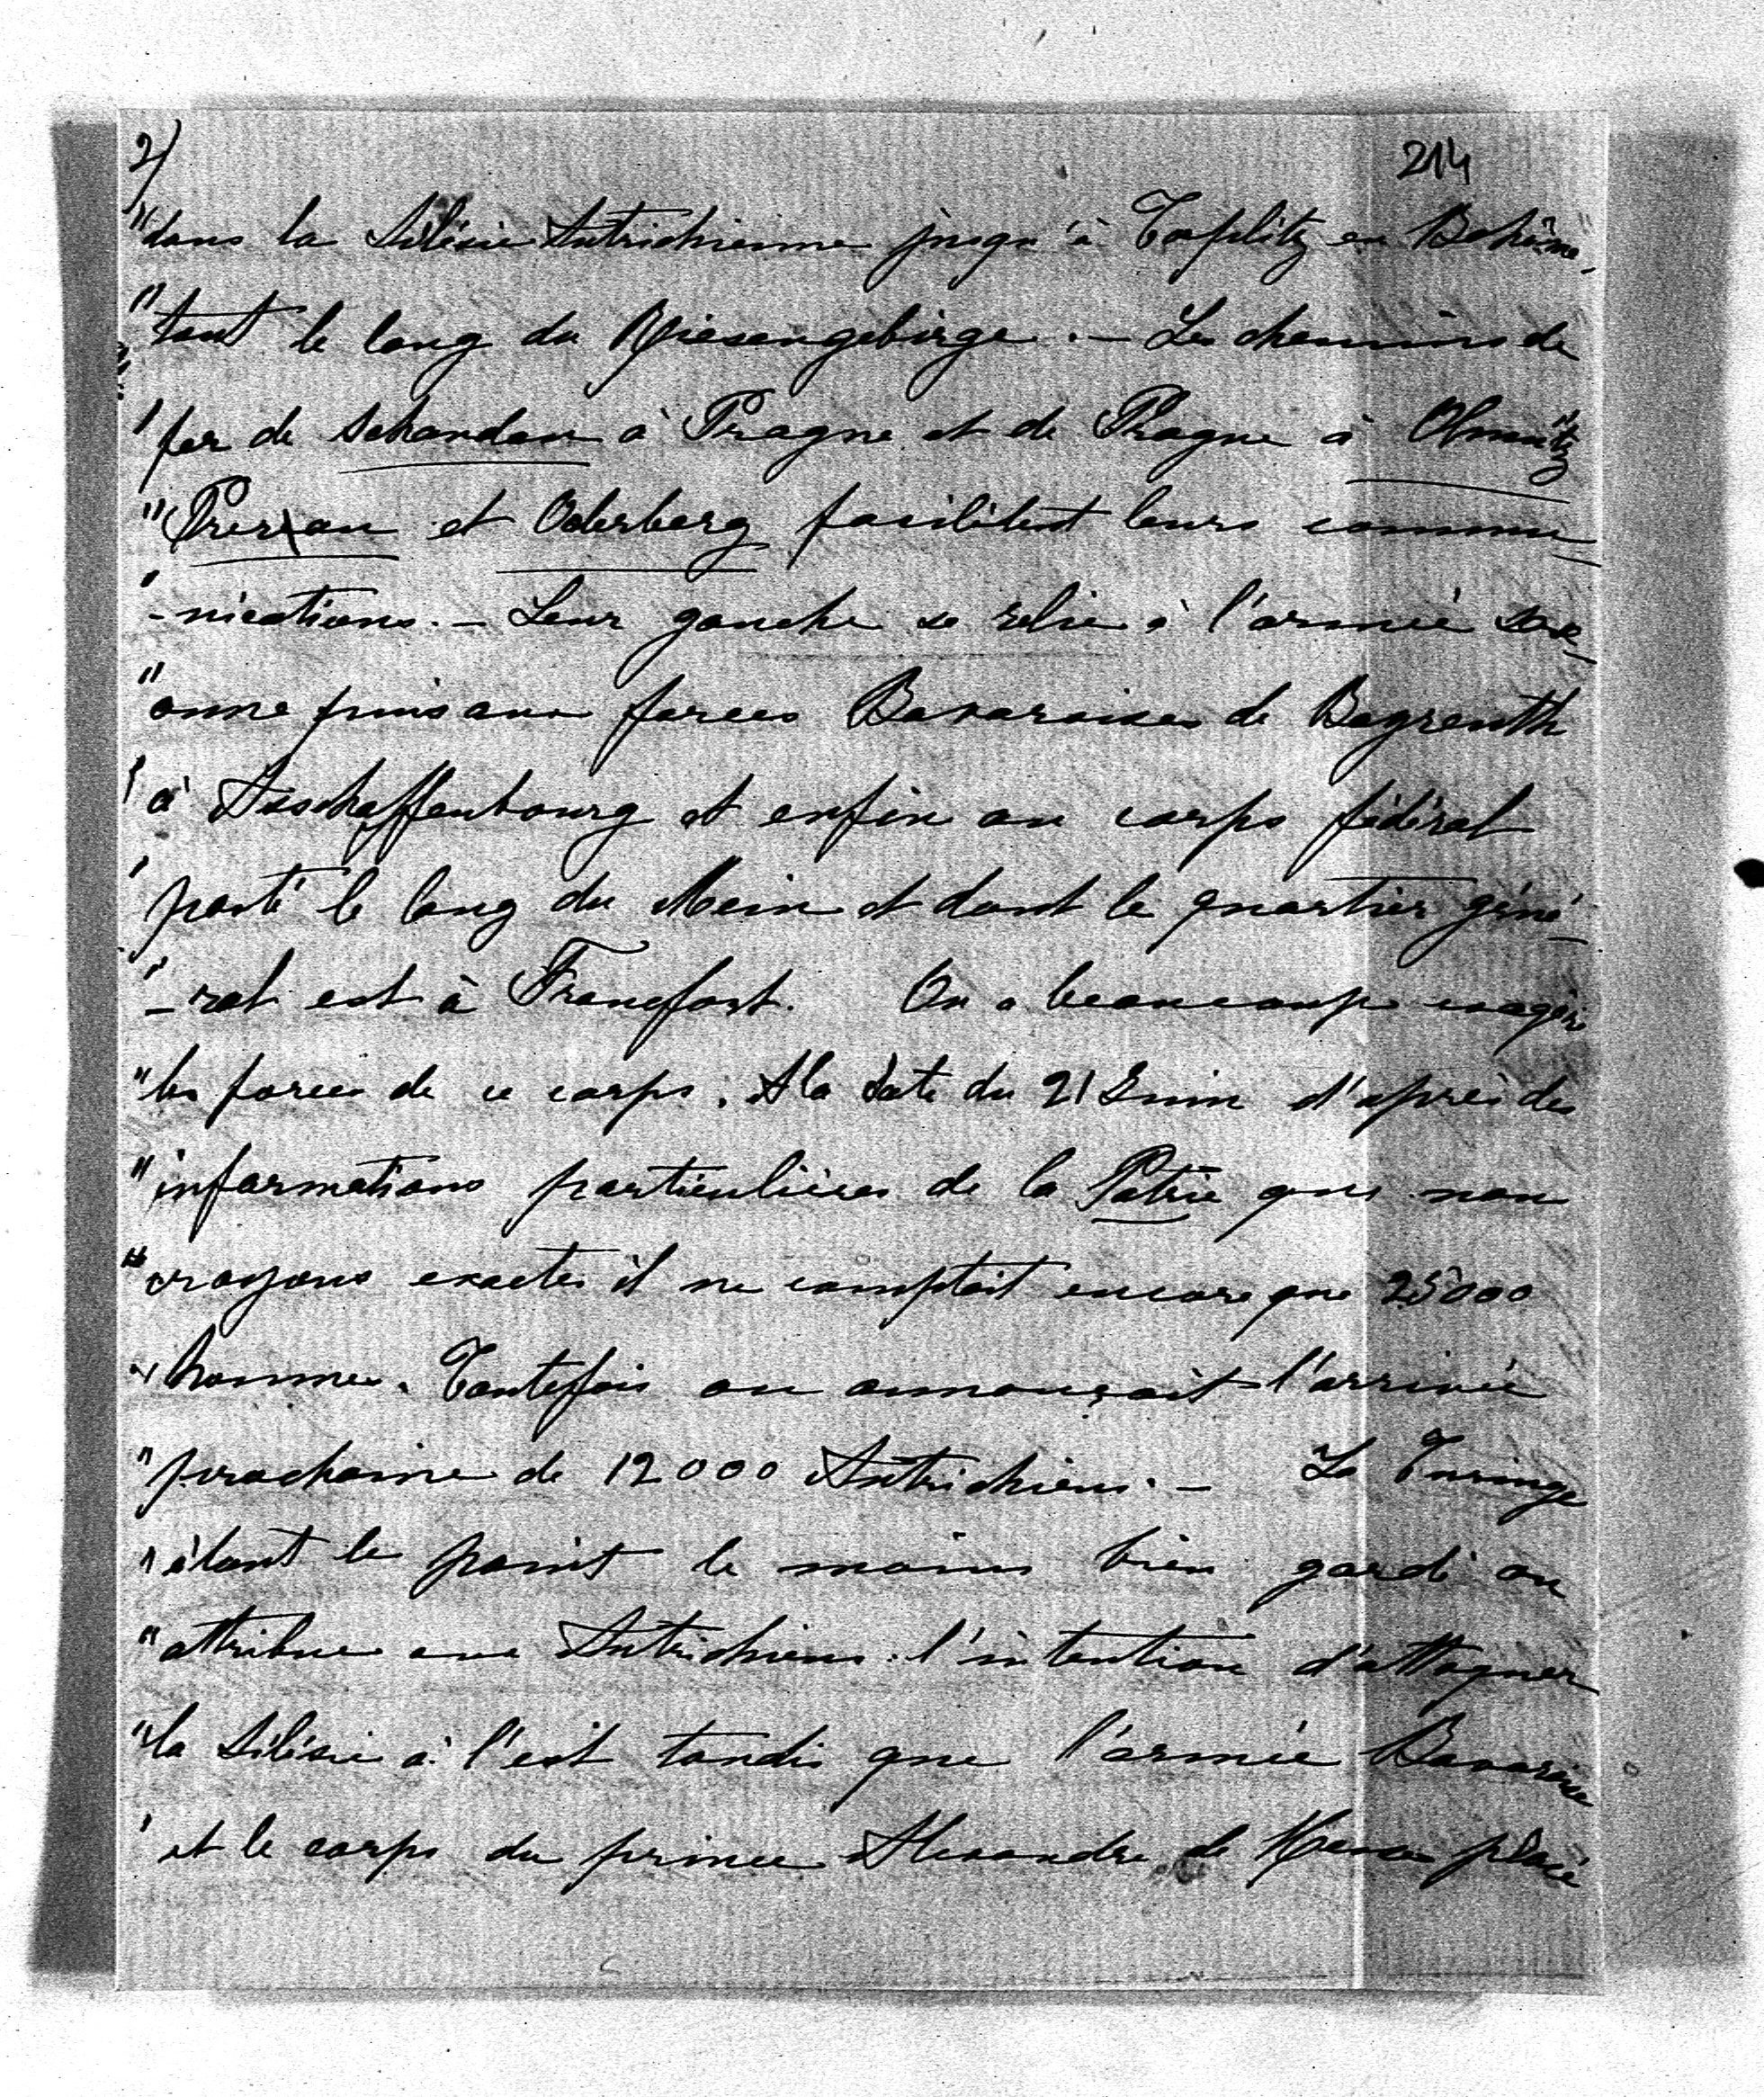 2)
214
"dans la Silésie Autrichienne jusqu'à Toeplitz en Bohême,
"tout le long du Riesengebirge. — Les chemins de
"fer de Schandau à Prague et de Prague à Olmutz
"Prerau et Oderberg facilitent leurs commu-
"-nications. — Leur gauche se relie à l'armée sax-
"onne puis aux forces Bavaroises de Bayreuth
"à Asschaffenbourg et enfin au corps fédéral
"posté le long du Mein et dont le quartier géné-
"-ral est à Francfort. On a beaucoup exagéré
"les forces de ce corps. A la date du 21 Juin d'après des
"informations particulières de la Patrie que nous
"croyons exactes il ne comptait encore que 25000
"hommes. Toutefois on annonçait l'arrivée
"prochaine de 12000 Autrichiens. — La Turinge
"étant le point le moins bien gardé on
"attribue aux Autrichiens l'intention d'attaquer
"la Silésie à l'est tandis que l'armée Bavaroise
"et le corps du prince Alexandre de Hesse placé